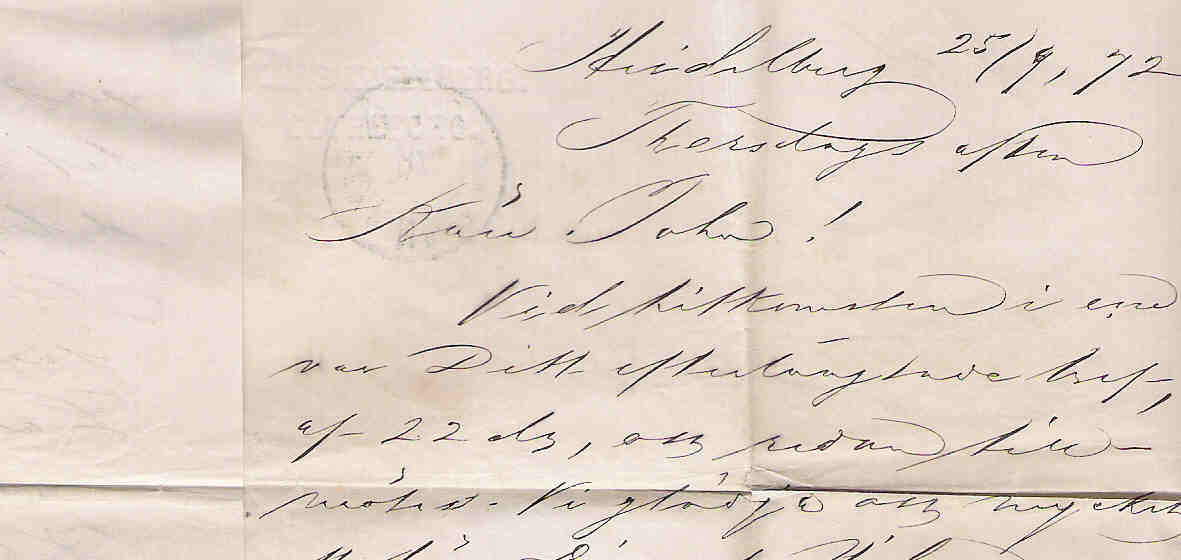 Heidelberg 25/9, 72
Thorsdags afton
Käre John!
Vid hitkomsten i
var Ditt efterlängtade bref,
af 22 ds, oss redan till-
mötes. Vi glädja oss mycket